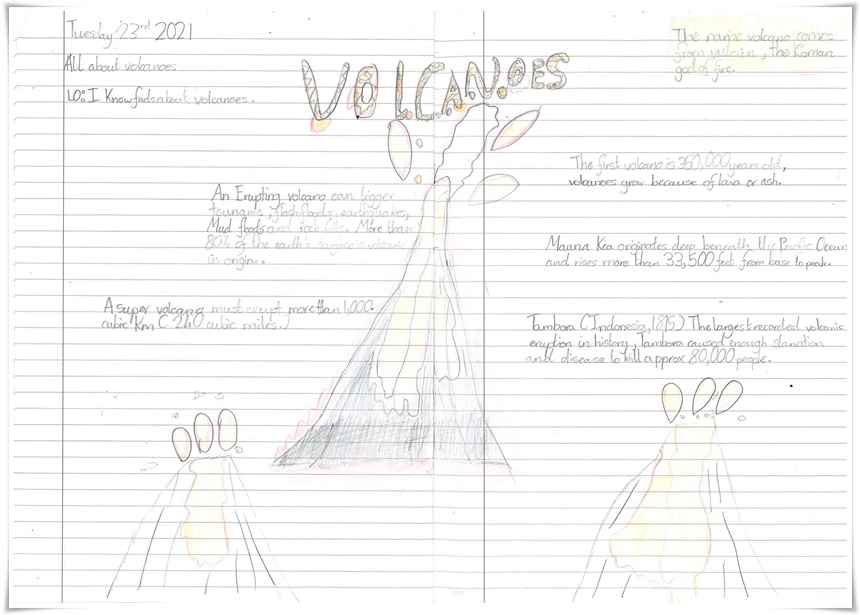 Tuesday 23rd 2021
All about volcanoes
LO: I Know facts about volcanoes.
VOLCANOES
The name volcano comes
from vulcan, the Roman
god of fire.
The first volcano is 350,000 years old,
volcanoes grow because of lava or ash.
An Erupting volcano can trigger
tsunamis, flash floods, earthquakes,
Mud floods and rock falls. More than
80% of the earth's surface is volcanic
in origin.
Mauna Kea originates deep beneath the Pacific Ocean
and rises more than 33,500 feet from base to peak.
A super volcano must erupt more than 1,000
cubic Km (240 cubic miles.)
Tambora (Indonesia, 1815) The largest recorded volcanic
eruption in history, Tambora caused enough starvation
and disease to kill approx 80,000 people.